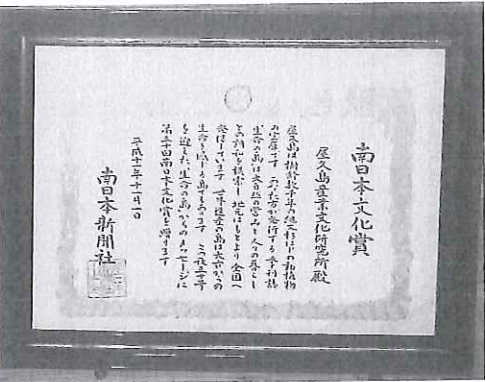 南日本文化賞
屋久島産業文化研究所殿
屋久島は樹齢数千年の縄文杉ほか動植物
の宝庫です あなた方が発行する季刊誌
生命の島は大自然の営みと人々の暮らし
との調和を模索し 地元はもとより全国へ
発信しています 世界遺産の島は太古からの
生命を伝える島でもあります この夜五十号
を迎えた 生命の島からのメッセージに
第五十回南日本文化賞を贈ります
平成十一年十一月一日
南日本新聞社